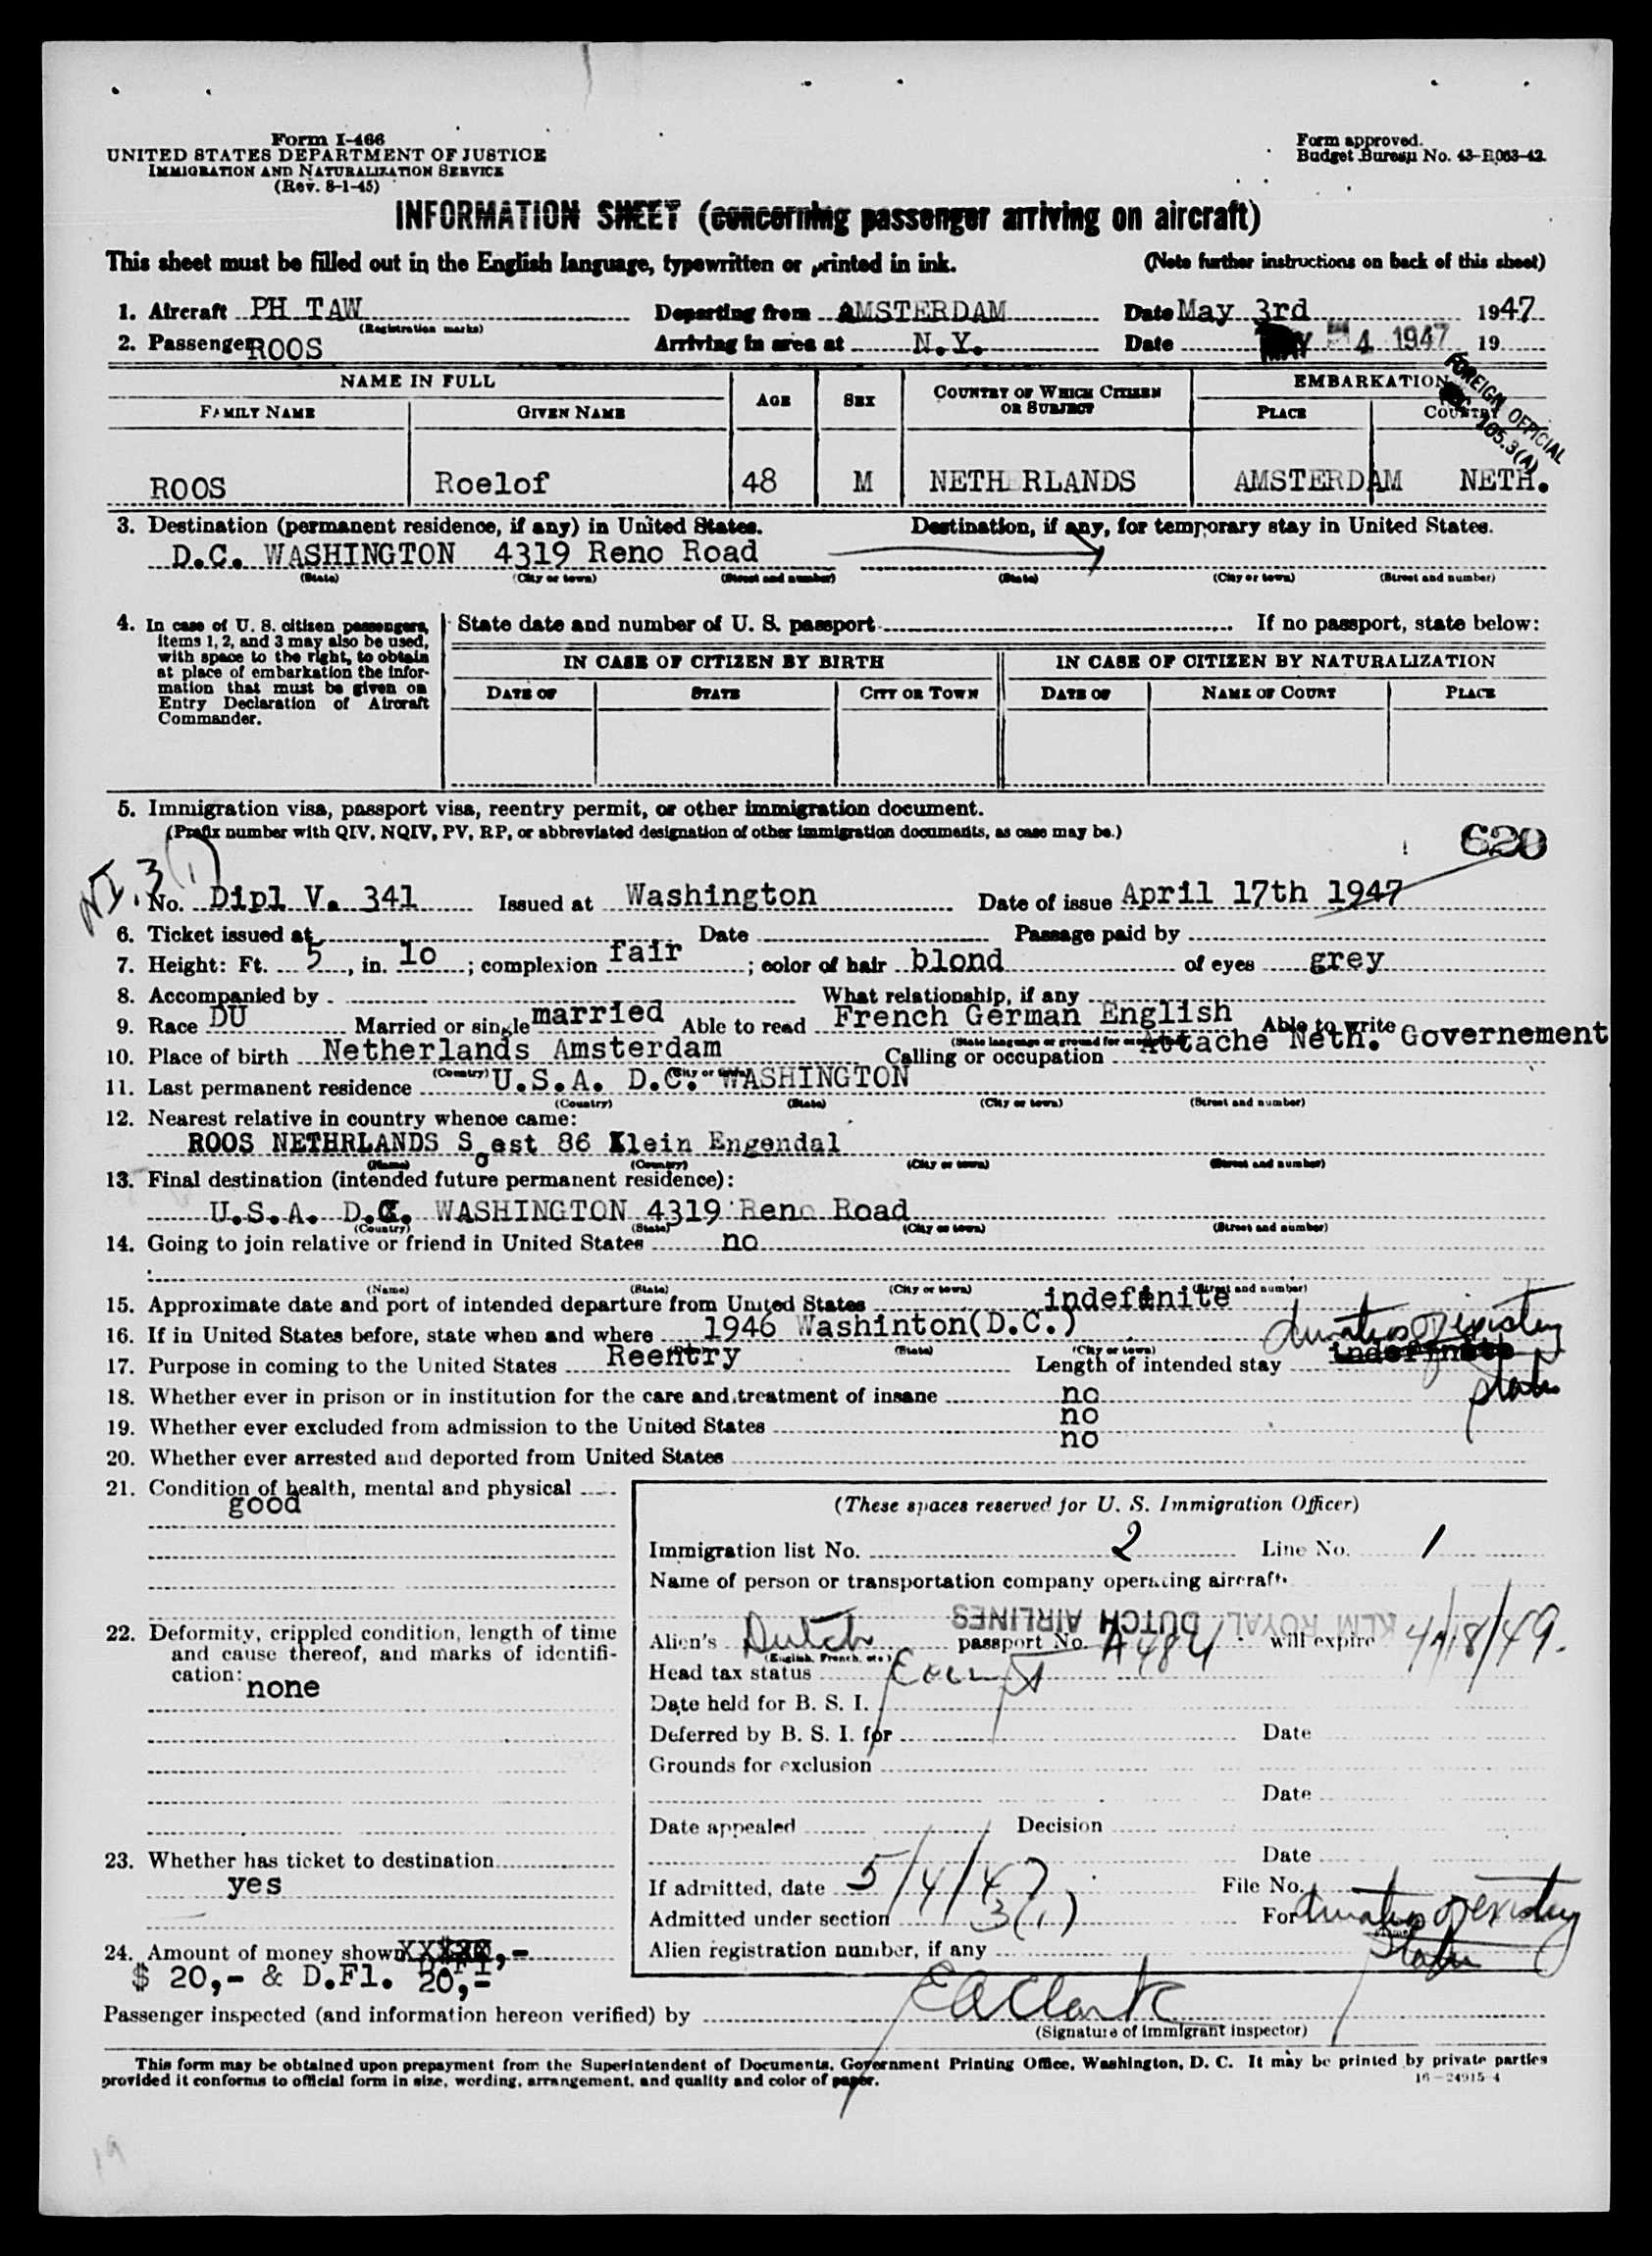 Form I-466
UNITED STATES DEPARTMENT OF JUSTICE
IMMIGRATION AND NATURALIZATION SERVICE
(Rev. 8-1-45)
Form approved.
Budget Bureau No. 43-R063-42.
INFORMATION SHEET (concerning passenger arriving on aircraft)
This sheet must be filled out in the English language, typewritten or printed in ink. (Note further instructions on back of this sheet)
1. Aircraft PH TAW Departing from AMSTERDAM Date May 3rd 1947
(Registration marks)
2. Passenger ROOS Arriving in area at N.Y. Date MAY 4 1947 19
FOREIGN OFFICIAL
SEC. 105.3(A)
NAME IN FULL AGE SEX COUNTRY OF WHICH CITIZEN OR SUBJECT EMBARKATION
FAMILY NAME GIVEN NAME PLACE COUNTRY
ROOS Roelof 48 M NETH RLANDS AMSTERDAM NETH.
3. Destination (permanent residence, if any) in United States. Destination, if any, for temporary stay in United States.
D.C. WASHINGTON 4319 Reno Road
(State) (City or town) (Street and number) (State) (City or town) (Street and number)
4. In case of U. S. citizen passengers, items 1, 2, and 3 may also be used, with space to the right, to obtain at place of embarkation the information that must be given on Entry Declaration of Aircraft Commander.
State date and number of U. S. passport If no passport, state below:
IN CASE OF CITIZEN BY BIRTH IN CASE OF CITIZEN BY NATURALIZATION
DATE OF STATE CITY OR TOWN DATE OF NAME OF COURT PLACE
5. Immigration visa, passport visa, reentry permit, or other immigration document.
(Prefix number with QIV, NQIV, PV, RP, or abbreviated designation of other immigration documents, as case may be.)
620
3(1)
No. Dipl V. 341 Issued at Washington Date of issue April 17th 1947
6. Ticket issued at Date Passage paid by
7. Height: Ft. 5, in. 10; complexion fair; color of hair blond of eyes grey
8. Accompanied by What relationship, if any
9. Race DU Married or single married Able to read French German English Able to write
(State language or ground for exemption)
10. Place of birth Netherlands Amsterdam Calling or occupation Attache Neth. Governement
(Country) (City or town)
11. Last permanent residence U.S.A. D.C. WASHINGTON
(Country) (State) (City or town) (Street and number)
12. Nearest relative in country whence came:
ROOS NETHRLANDS Soest 86 Klein Engendal
(Name) (Country) (City or town) (Street and number)
13. Final destination (intended future permanent residence):
U.S.A. D.C. WASHINGTON 4319 Reno Road
(Country) (State) (City or town) (Street and number)
14. Going to join relative or friend in United States no
(Name) (State) (City or town) (Street and number)
15. Approximate date and port of intended departure from United States indefinite
16. If in United States before, state when and where 1946 Washinton(D.C.)
(State) (City or town)
duration of existing
17. Purpose in coming to the United States Reentry Length of intended stay indefinite
status
18. Whether ever in prison or in institution for the care and treatment of insane no
19. Whether ever excluded from admission to the United States no
20. Whether ever arrested and deported from United States no
21. Condition of health, mental and physical
good
22. Deformity, crippled condition, length of time and cause thereof, and marks of identification:
none
23. Whether has ticket to destination
yes
24. Amount of money shown
$ 20,- & D.Fl. 20,-
(These spaces reserved for U. S. Immigration Officer)
Immigration list No. 2 Line No. 1
Name of person or transportation company operating aircraft
KLM ROYAL DUTCH AIRLINES
Alien's Dutch passport No. A 484 will expire 4/18/49.
(English, French, etc.)
Head tax status Exempt
Date held for B. S. I.
Deferred by B. S. I. for Date
Grounds for exclusion
Date
Date appealed Decision
Date
If admitted, date 5/4/47 File No.
Admitted under section 3(1) For duration of existing
status
Alien registration number, if any
Passenger inspected (and information hereon verified) by E A Clark
(Signature of immigrant inspector)
This form may be obtained upon prepayment from the Superintendent of Documents, Government Printing Office, Washington, D. C. It may be printed by private parties
provided it conforms to official form in size, wording, arrangement, and quality and color of paper.
16-24915-4
19